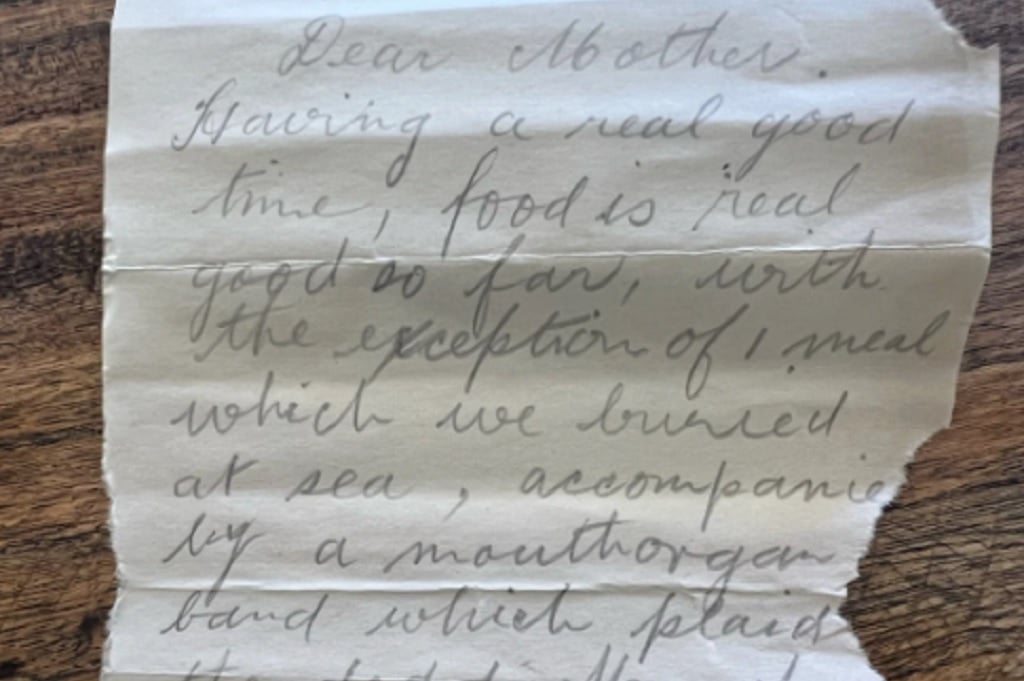 Dear Mother.
Having a real good
time, food is real
good so far, with
the exception of 1 meal
which we buried
at sea, accompanie
by a mouthorgan
band which plaid